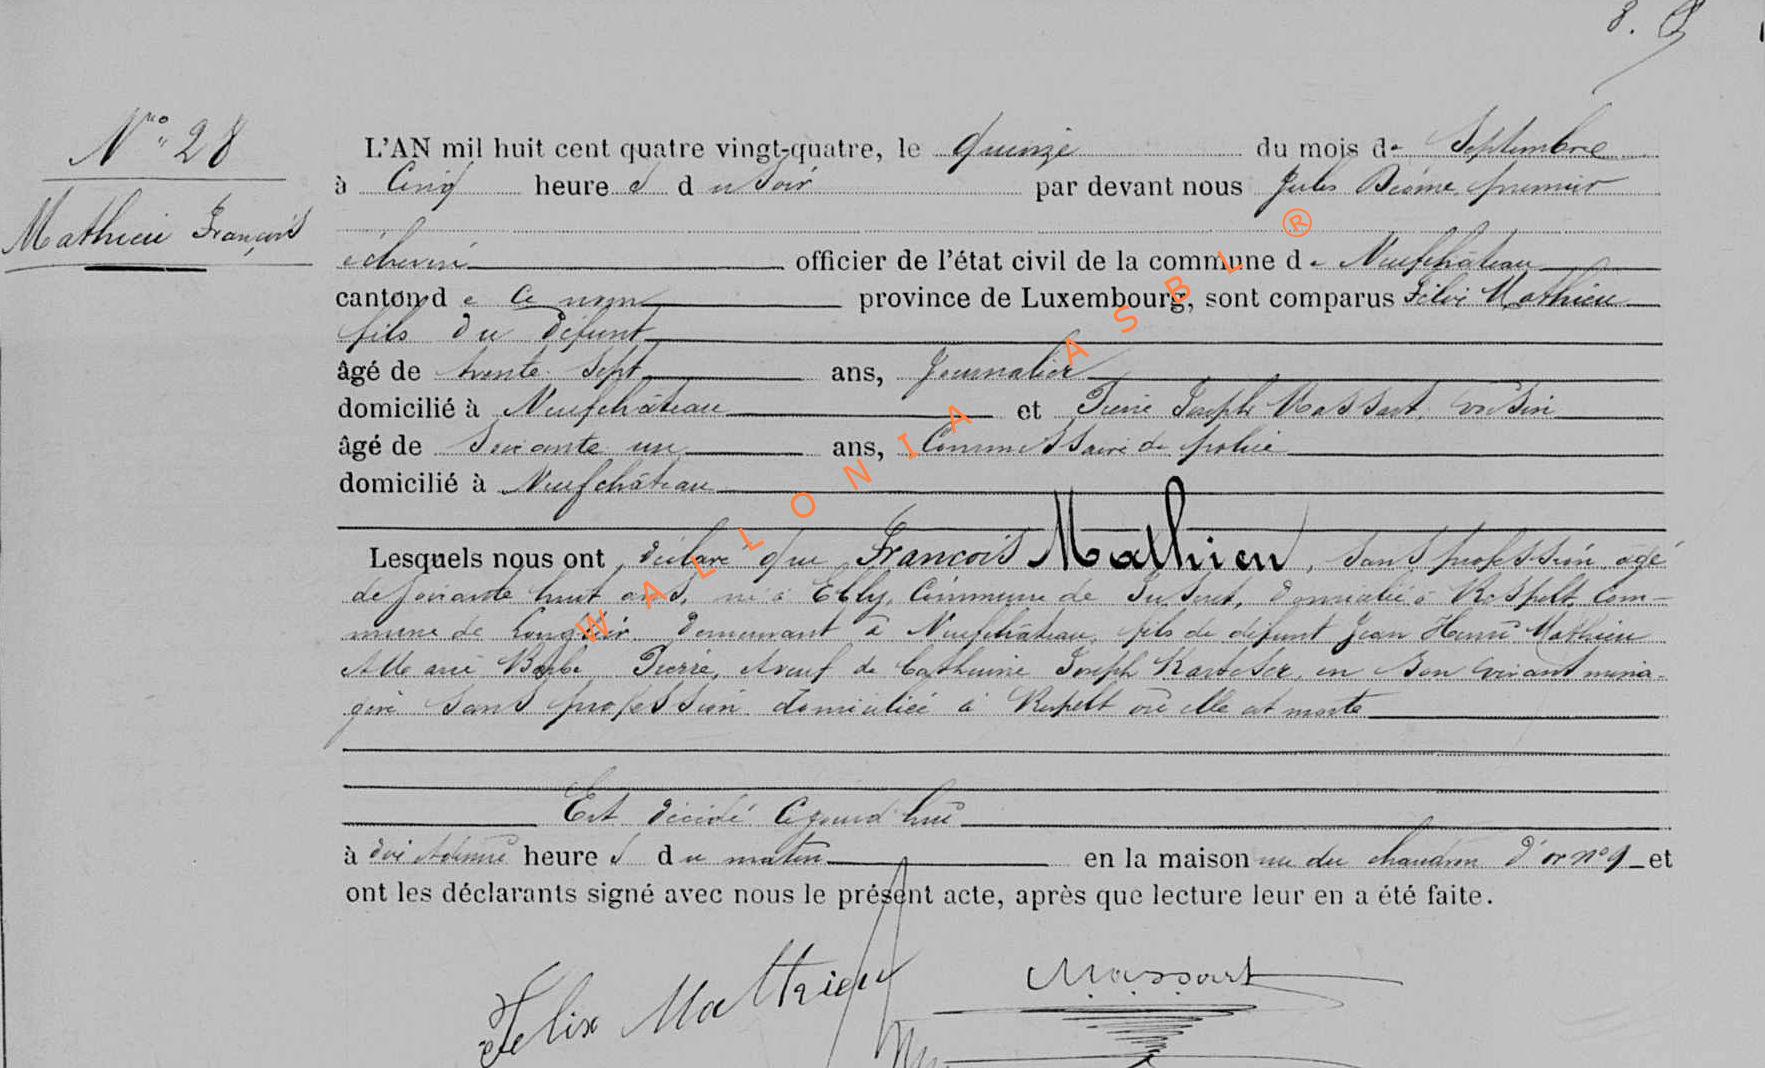 8.
N° 28
Mathieu François
L'AN mil huit cent quatre vingt-quatre, le quinze du mois de Septembre
à Cinq heures du Soir par devant nous Jules premier
échevin officier de l'état civil de la commune de Neufchâteau
canton de Ce nom province de Luxembourg, sont comparus Félix Mathieu
fils du défunt
âgé de trente sept ans, Journalier
domicilié à Neufchâteau et Pierre Joseph Massart, voisin
âgé de Soixante un ans, Commissaire de police
domicilié à Neufchâteau
Lesquels nous ont déclaré que François Mathieu, sans profession, agé
de soixante huit ans, né à Ebly, Commune de Juseret, domicilié à Respelt, Com-
mune de Longlier, demeurant à Neufchâteau, fils de défunt Jean Henri Mathieu
et Marie Barbe Pierre, veuf de Catherine Joseph en son vivant ména-
gère sans profession domiciliée à Respelt où elle est morte
Est décédé Cejourd'hui
à dix heures du matin en la maison rue du chaudron d'or n° 9 et
ont les déclarants signé avec nous le présent acte, après que lecture leur en a été faite.
Felix Mathieu
Massart
WALLONIA ASBL ®